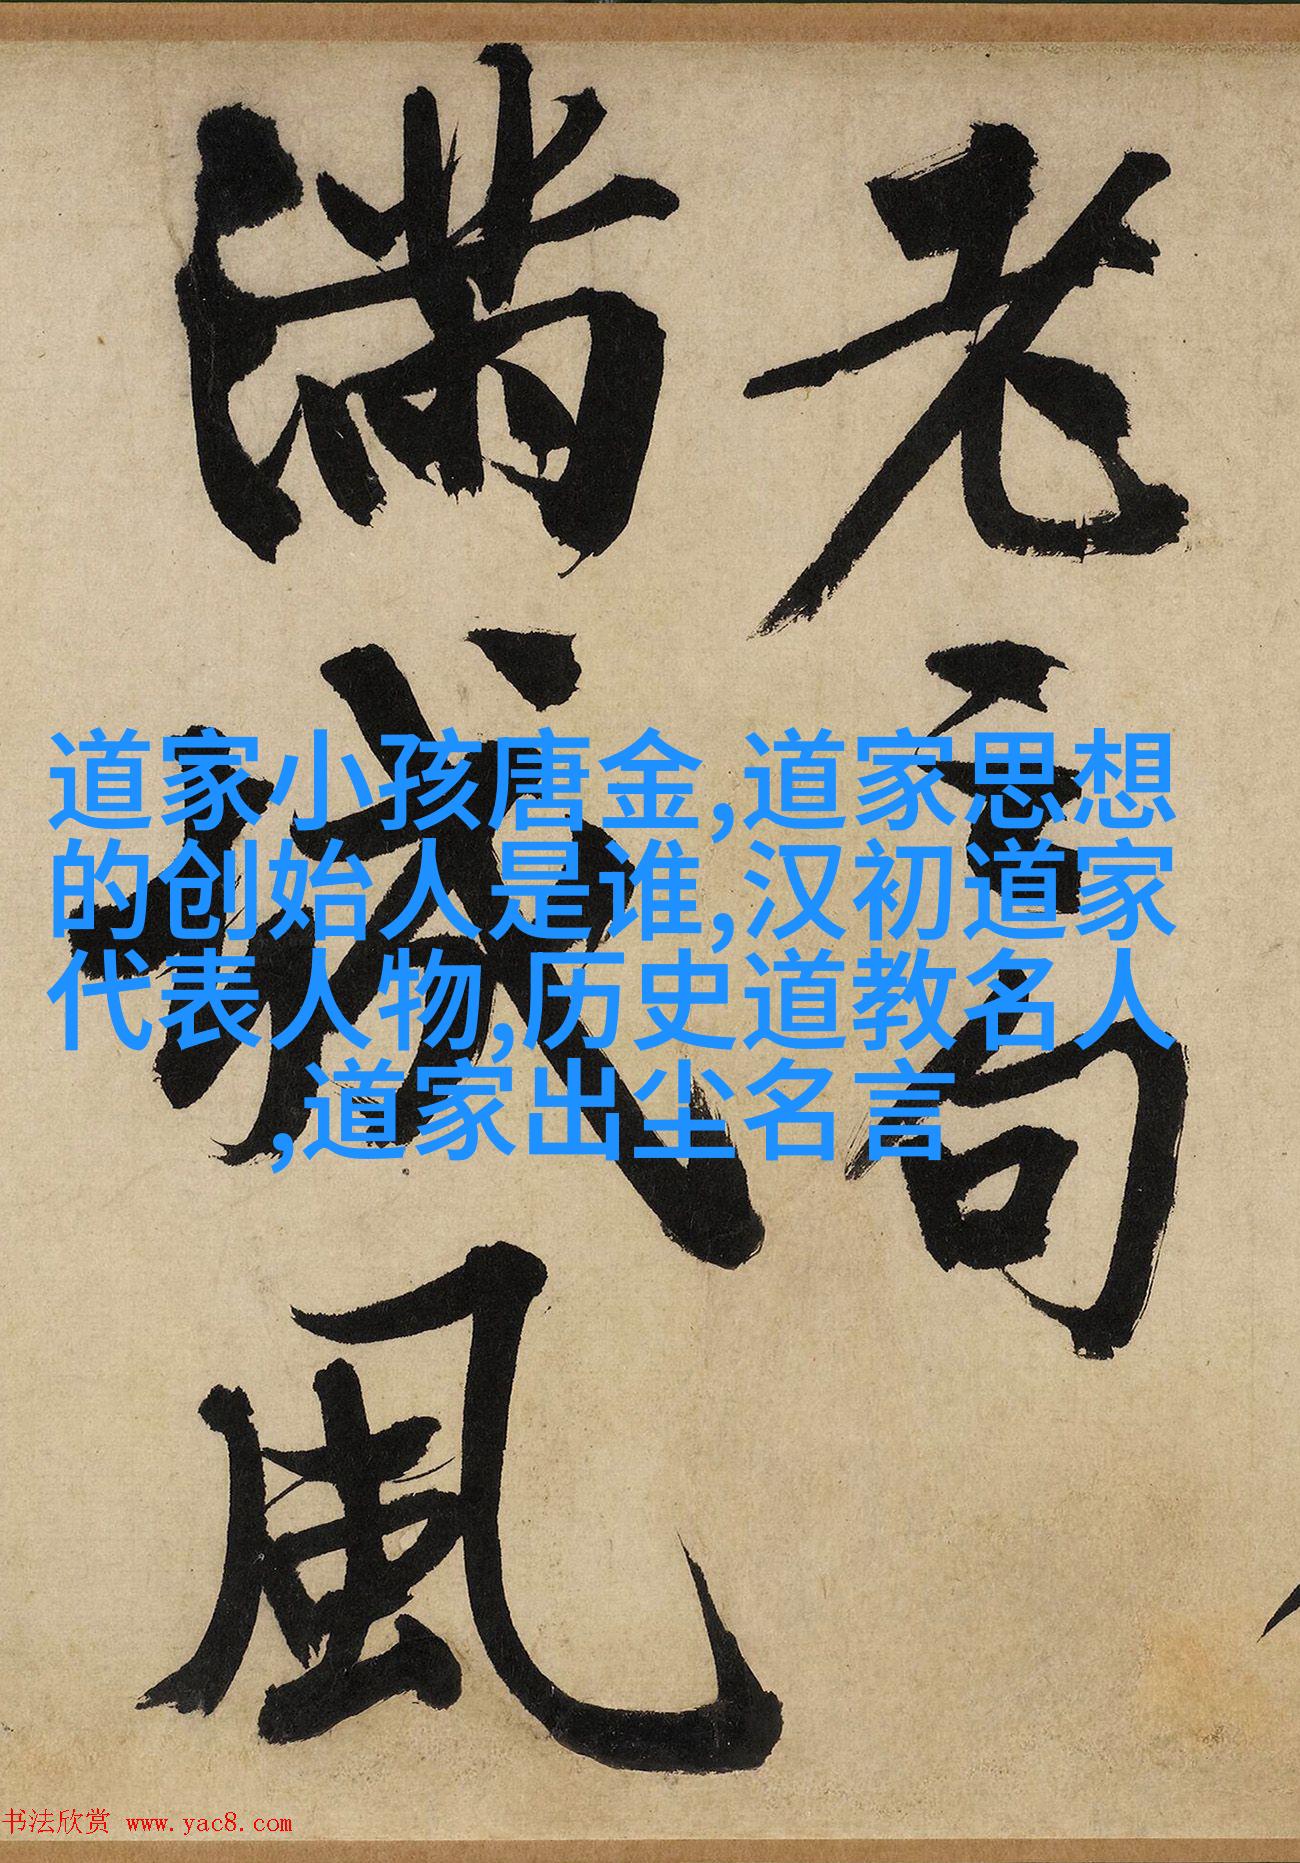 老 句
滿城風
道家小孩唐金,道家思想
的创始人是谁,汉初道家
代表人物,历史道教名人
,道家出尘名言
书法欣赏 www.yac8.com